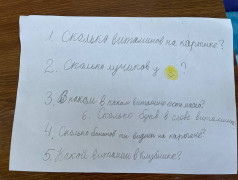 1. Сколько витаминов на картинке?
2. Сколько лучиков у ?
3. В каком в каком витамине есть масло?
6. Сколько букв в слове витамины
4. Сколько бананов ты видишь на картинке?
5. Какой витамин в клубнике?